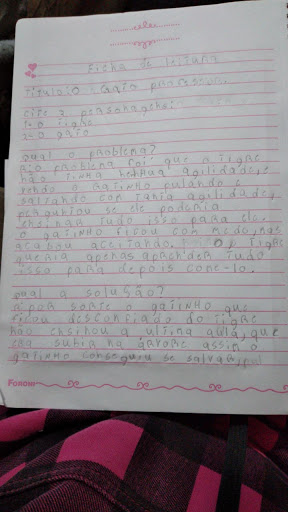 Ficha de leitura
Título: O Gato professor.
Cite 2 personagens:
1-O tigre
2-O gato
Qual o problema?
R: O problema foi que a tigre
não tinha nenhua agilidade, e
vendo o gatinho pulando e
saltando com tanta agilidade,
perguntou se ele poderia
ensinar tudo isso para ele.
O gatinho ficou com medo, mas
acabou aceitando. O tigre
queria apenas aprender tudo
isso para depois come-lo.
Qual a solução?
R: por sorte o gatinho que
ficou desconfiado do tigre
não ensinou a ultima aula, que
era subir na árvore assim o
gatinho conseguiu se salvar, pul
FORONI